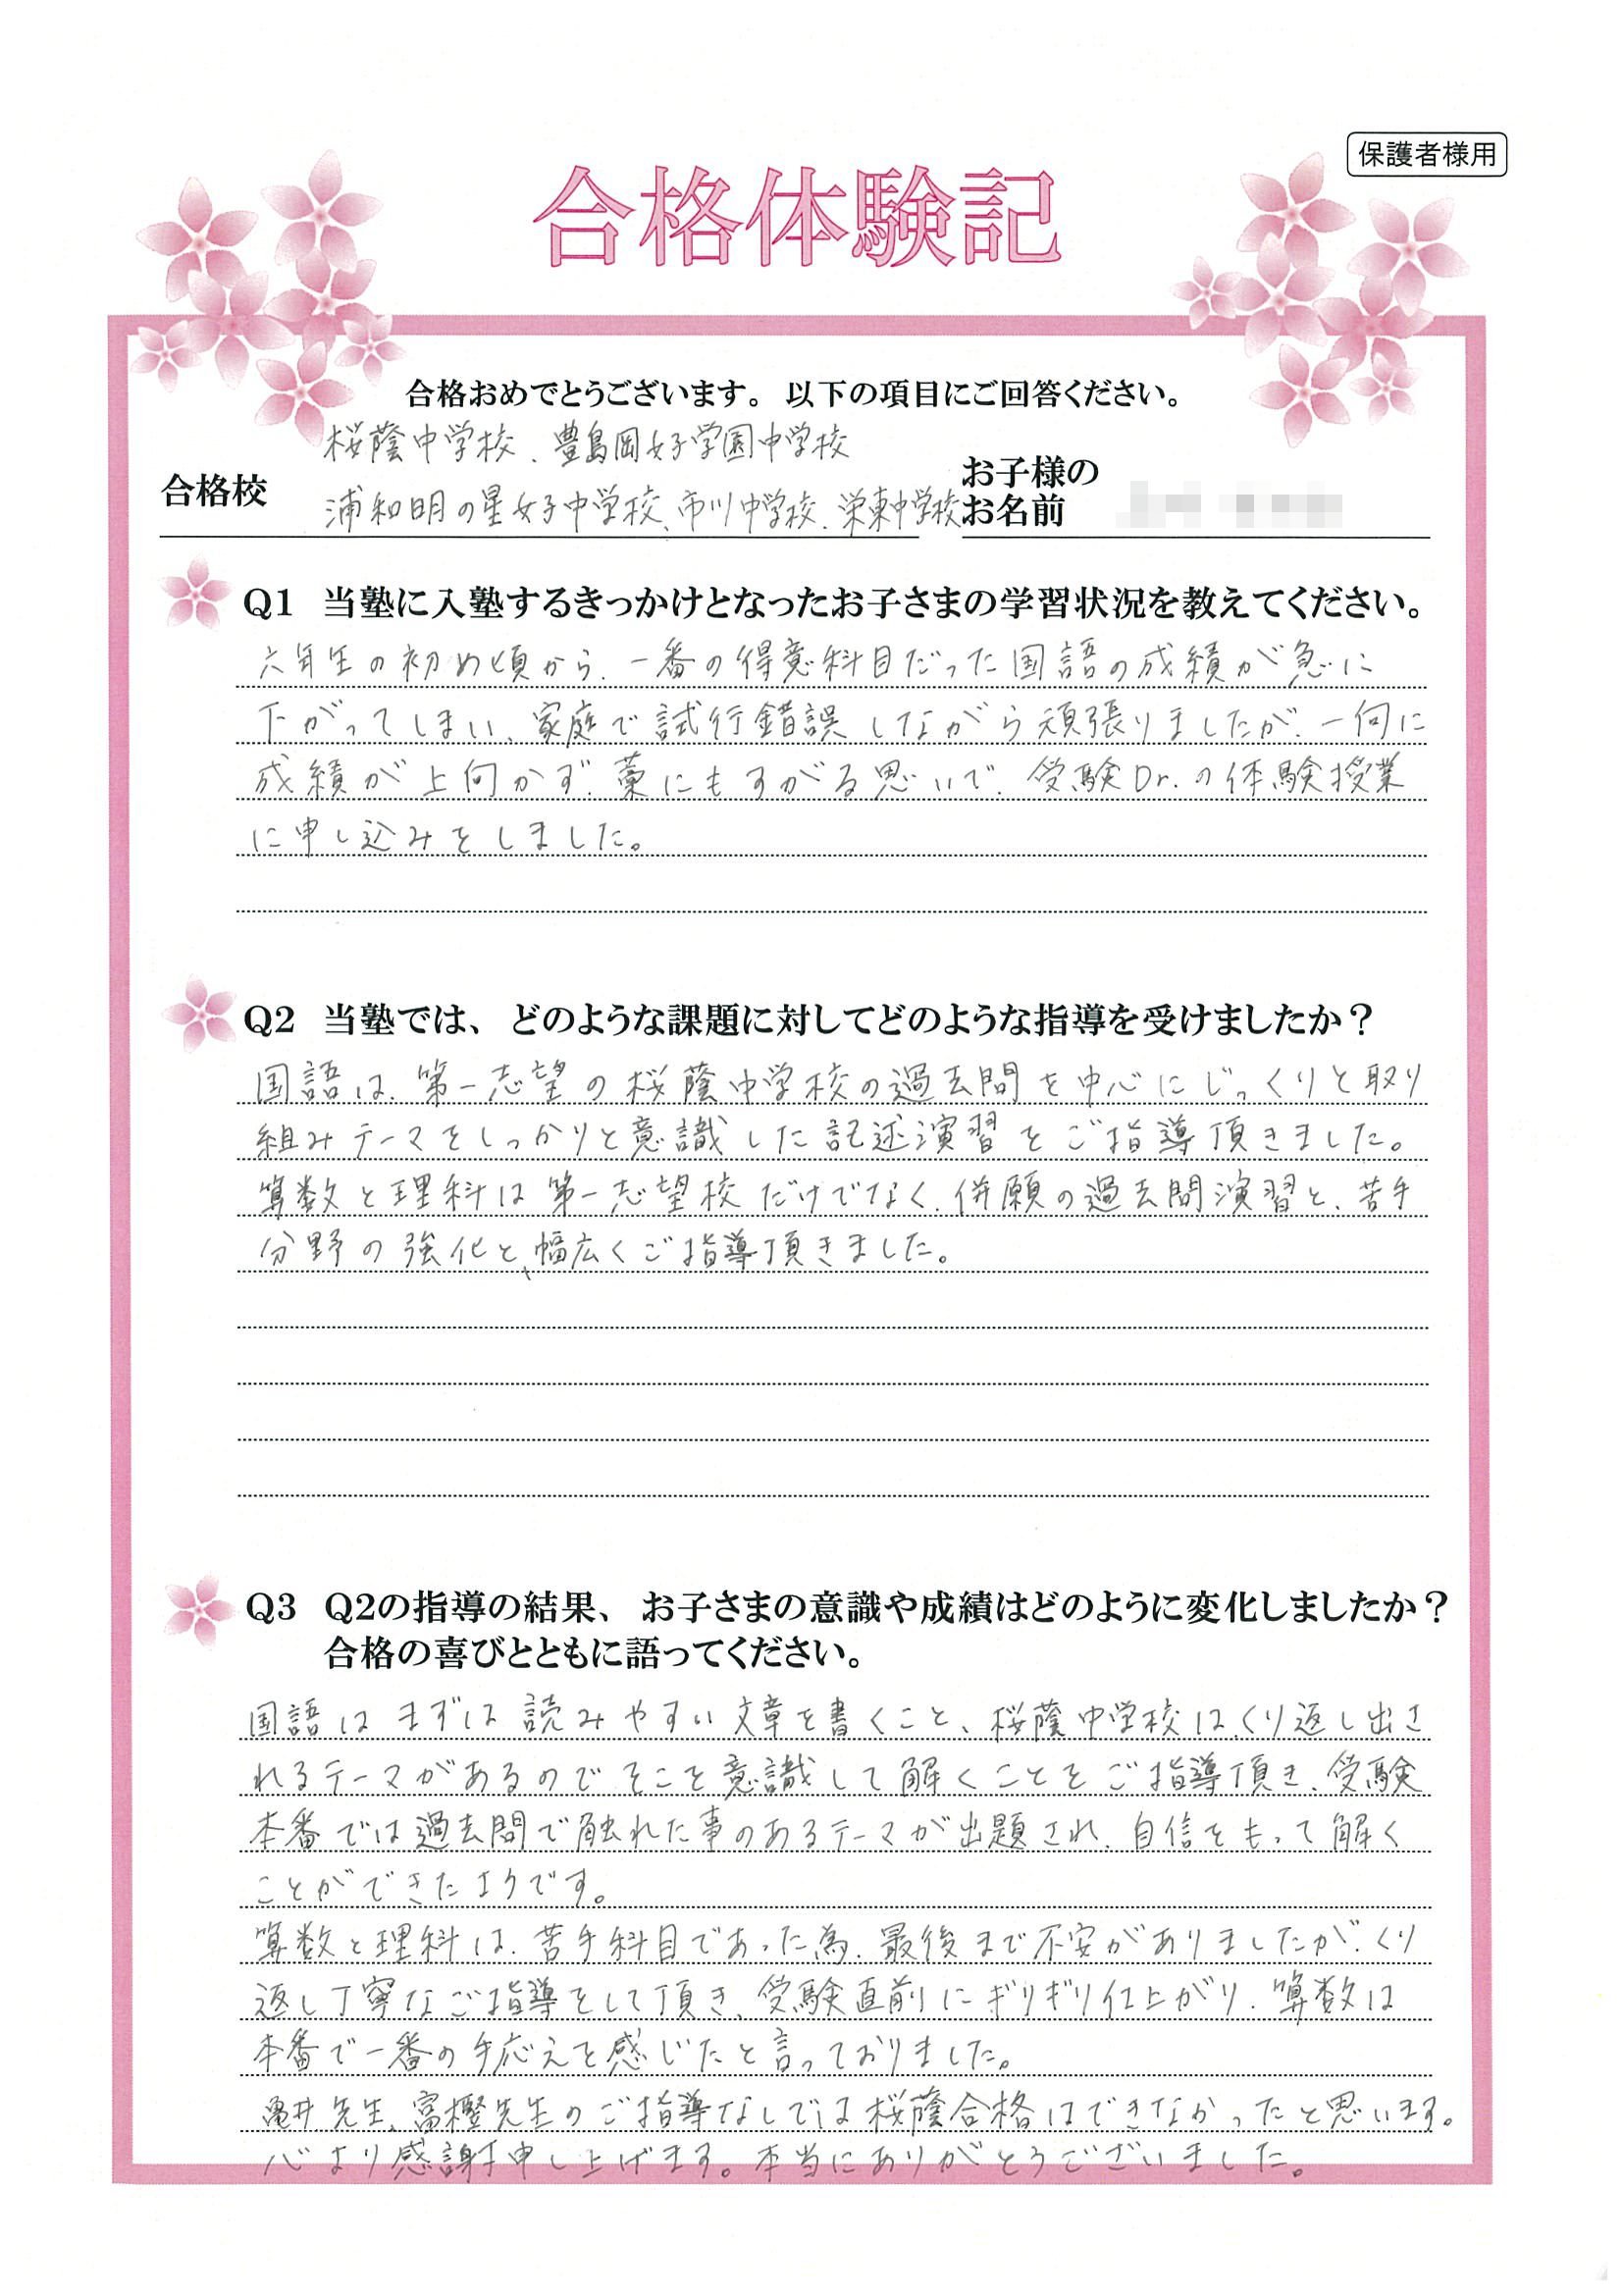 保護者様用
合格体験記
合格おめでとうございます。以下の項目にご回答ください。
桜蔭中学校、豊島岡女子学園中学校
合格校
浦和明の星女子中学校、市川中学校、栄東中学校
お子様の
お名前
Q1 当塾に入塾するきっかけとなったお子さまの学習状況を教えてください。
六年生の初め頃から、一番の得意科目だった国語の成績が急に
下がってしまい、家庭で試行錯誤しながら頑張りましたが、一向に
成績が上向かず、藁にもすがる思いで、受験Dr.の体験授業
に申し込みをしました。
Q2 当塾では、どのような課題に対してどのような指導を受けましたか？
国語は、第一志望の桜蔭中学校の過去問を中心にじっくりと取り
組みテーマをしっかりと意識した記述演習をご指導頂きました。
算数と理科は第一志望校だけでなく、併願の過去問演習と、苦手
分野の強化と、幅広くご指導頂きました。
Q3 Q2の指導の結果、お子さまの意識や成績はどのように変化しましたか？
合格の喜びとともに語ってください。
国語はまずは読みやすい文章を書くこと、桜蔭中学校はくり返し出さ
れるテーマがあるのでそこを意識して解くことをご指導頂き、受験
本番では過去問で触れた事のあるテーマが出題され、自信をもって解く
ことができたようです。
算数と理科は、苦手科目であった為、最後まで不安がありましたが、くり
返し丁寧なご指導をして頂き、受験直前にギリギリ仕上がり、算数は
本番で一番の手応えを感じたと言っておりました。
亀井先生、富樫先生のご指導なしでは桜蔭合格はできなかったと思います。
心より感謝申し上げます。本当にありがとうございました。